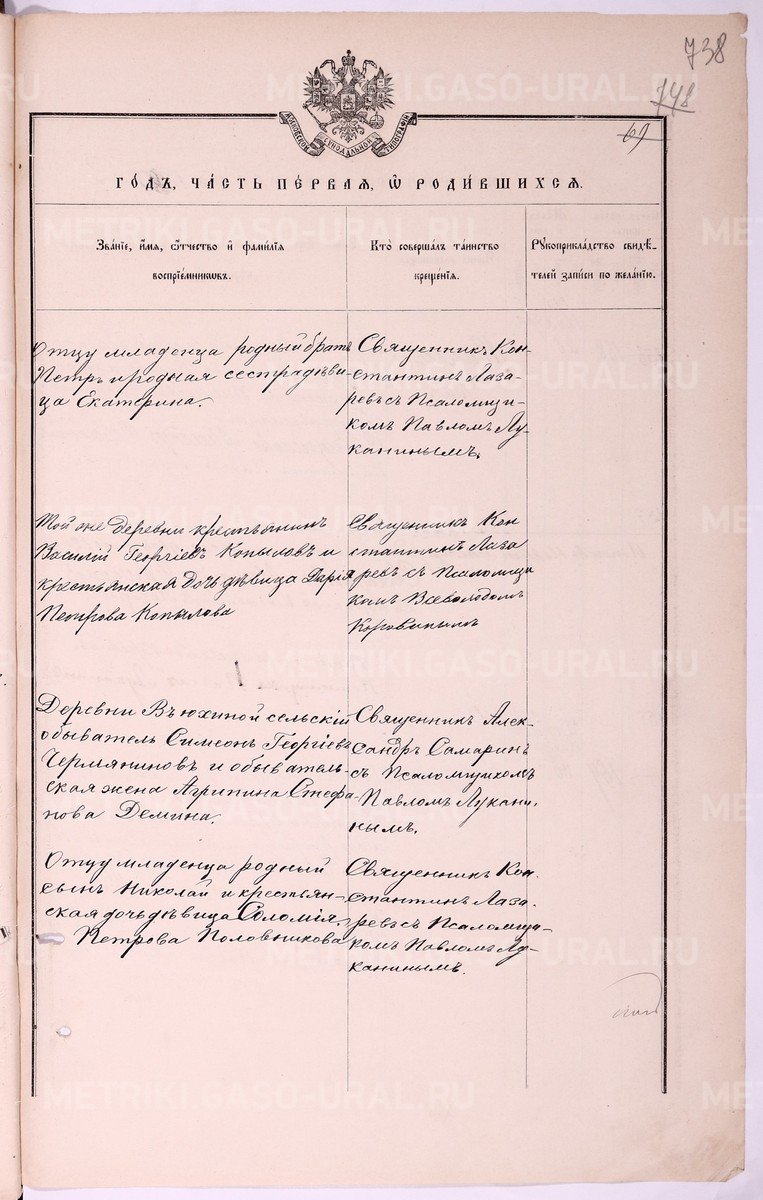 738
748
69
МОСКОВСКОЙ СѴНОДАЛЬНОЙ ТИПОГРАФІИ
ГО́ДЪ, ЧА́СТЬ ПЕ́РВАЯ, Ѽ РОДИ́ВШИХСЯ.
Зва́ніе, и́мя, ѻ҆́тчество и҆ фами́лія
воспріе́мниковъ.
Кто̀ соверша́лъ та́инство
креще́нія.
Рꙋкоприкла́дство свидѣ́-
телей за́писи по жела́нію.
Отцу младенца родный братъ
Петръ и родная сестра дѣви-
ца Екатерина.
Священникъ Кон-
стантинъ Лаза-
ревъ съ Псаломщи-
комъ Павломъ Лу-
канинымъ.
Той же деревни крестьянинъ
Василій Георгіевъ Копыловъ и
крестьянская дочь дѣвица Дарія
Петрова Копылова
Священникъ Кон
стантинъ Лаза
ревъ съ Псаломщи
комъ Всеволодомъ
Коровинымъ
Деревни Вьюхиной сельскій
обыватель Симеонъ Георгіевъ
Чермяниновъ и обыватель-
ская жена Агрипина Стефа
нова Демина.
Священникъ Алек-
сандръ Самаринъ
съ Псаломщикомъ
Павломъ Лукани-
нымъ.
Отцу младенца родный
сынъ Николай и крестьян-
ская дочь дѣвица Соломія
Петрова Половникова
Священникъ Кон-
стантинъ Лаза-
ревъ съ Псаломщи-
комъ Павломъ Лу-
канинымъ.
METRIKI.GASO-URAL.RU